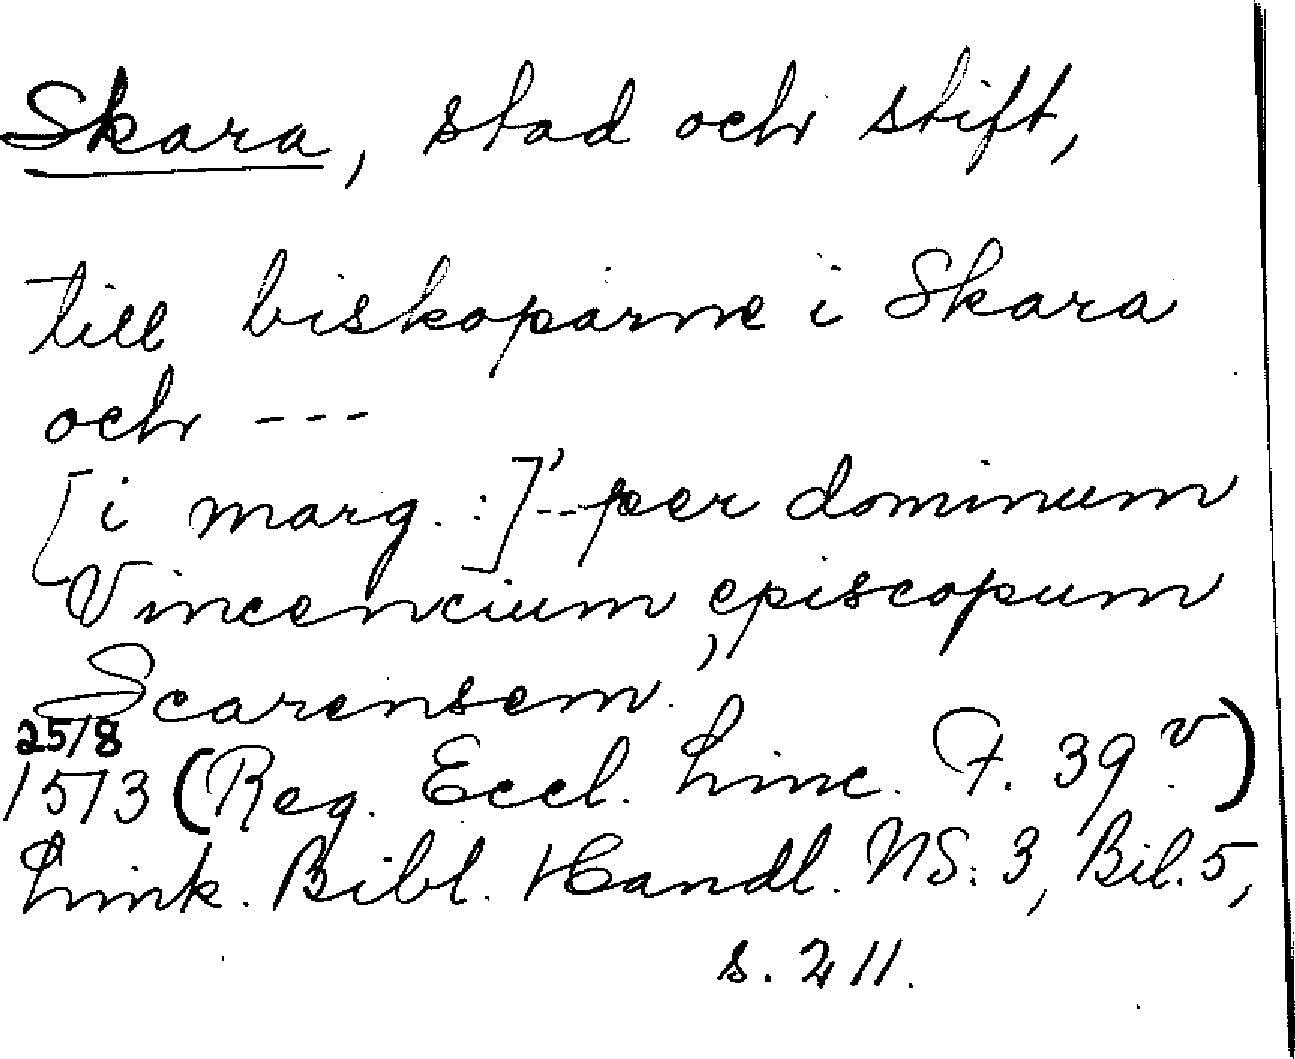 Skara, stad och stift,
till biskoparne i Skara
och ---
[i marg. :]' -- per dominum
Vincencium, episcopum
Scarensem.
25/8
1513 (Reg. Eccl. Linc. F. 39 v)
Link. Bibl. Handl. NS: 3, Bil. 5,
s. 211.